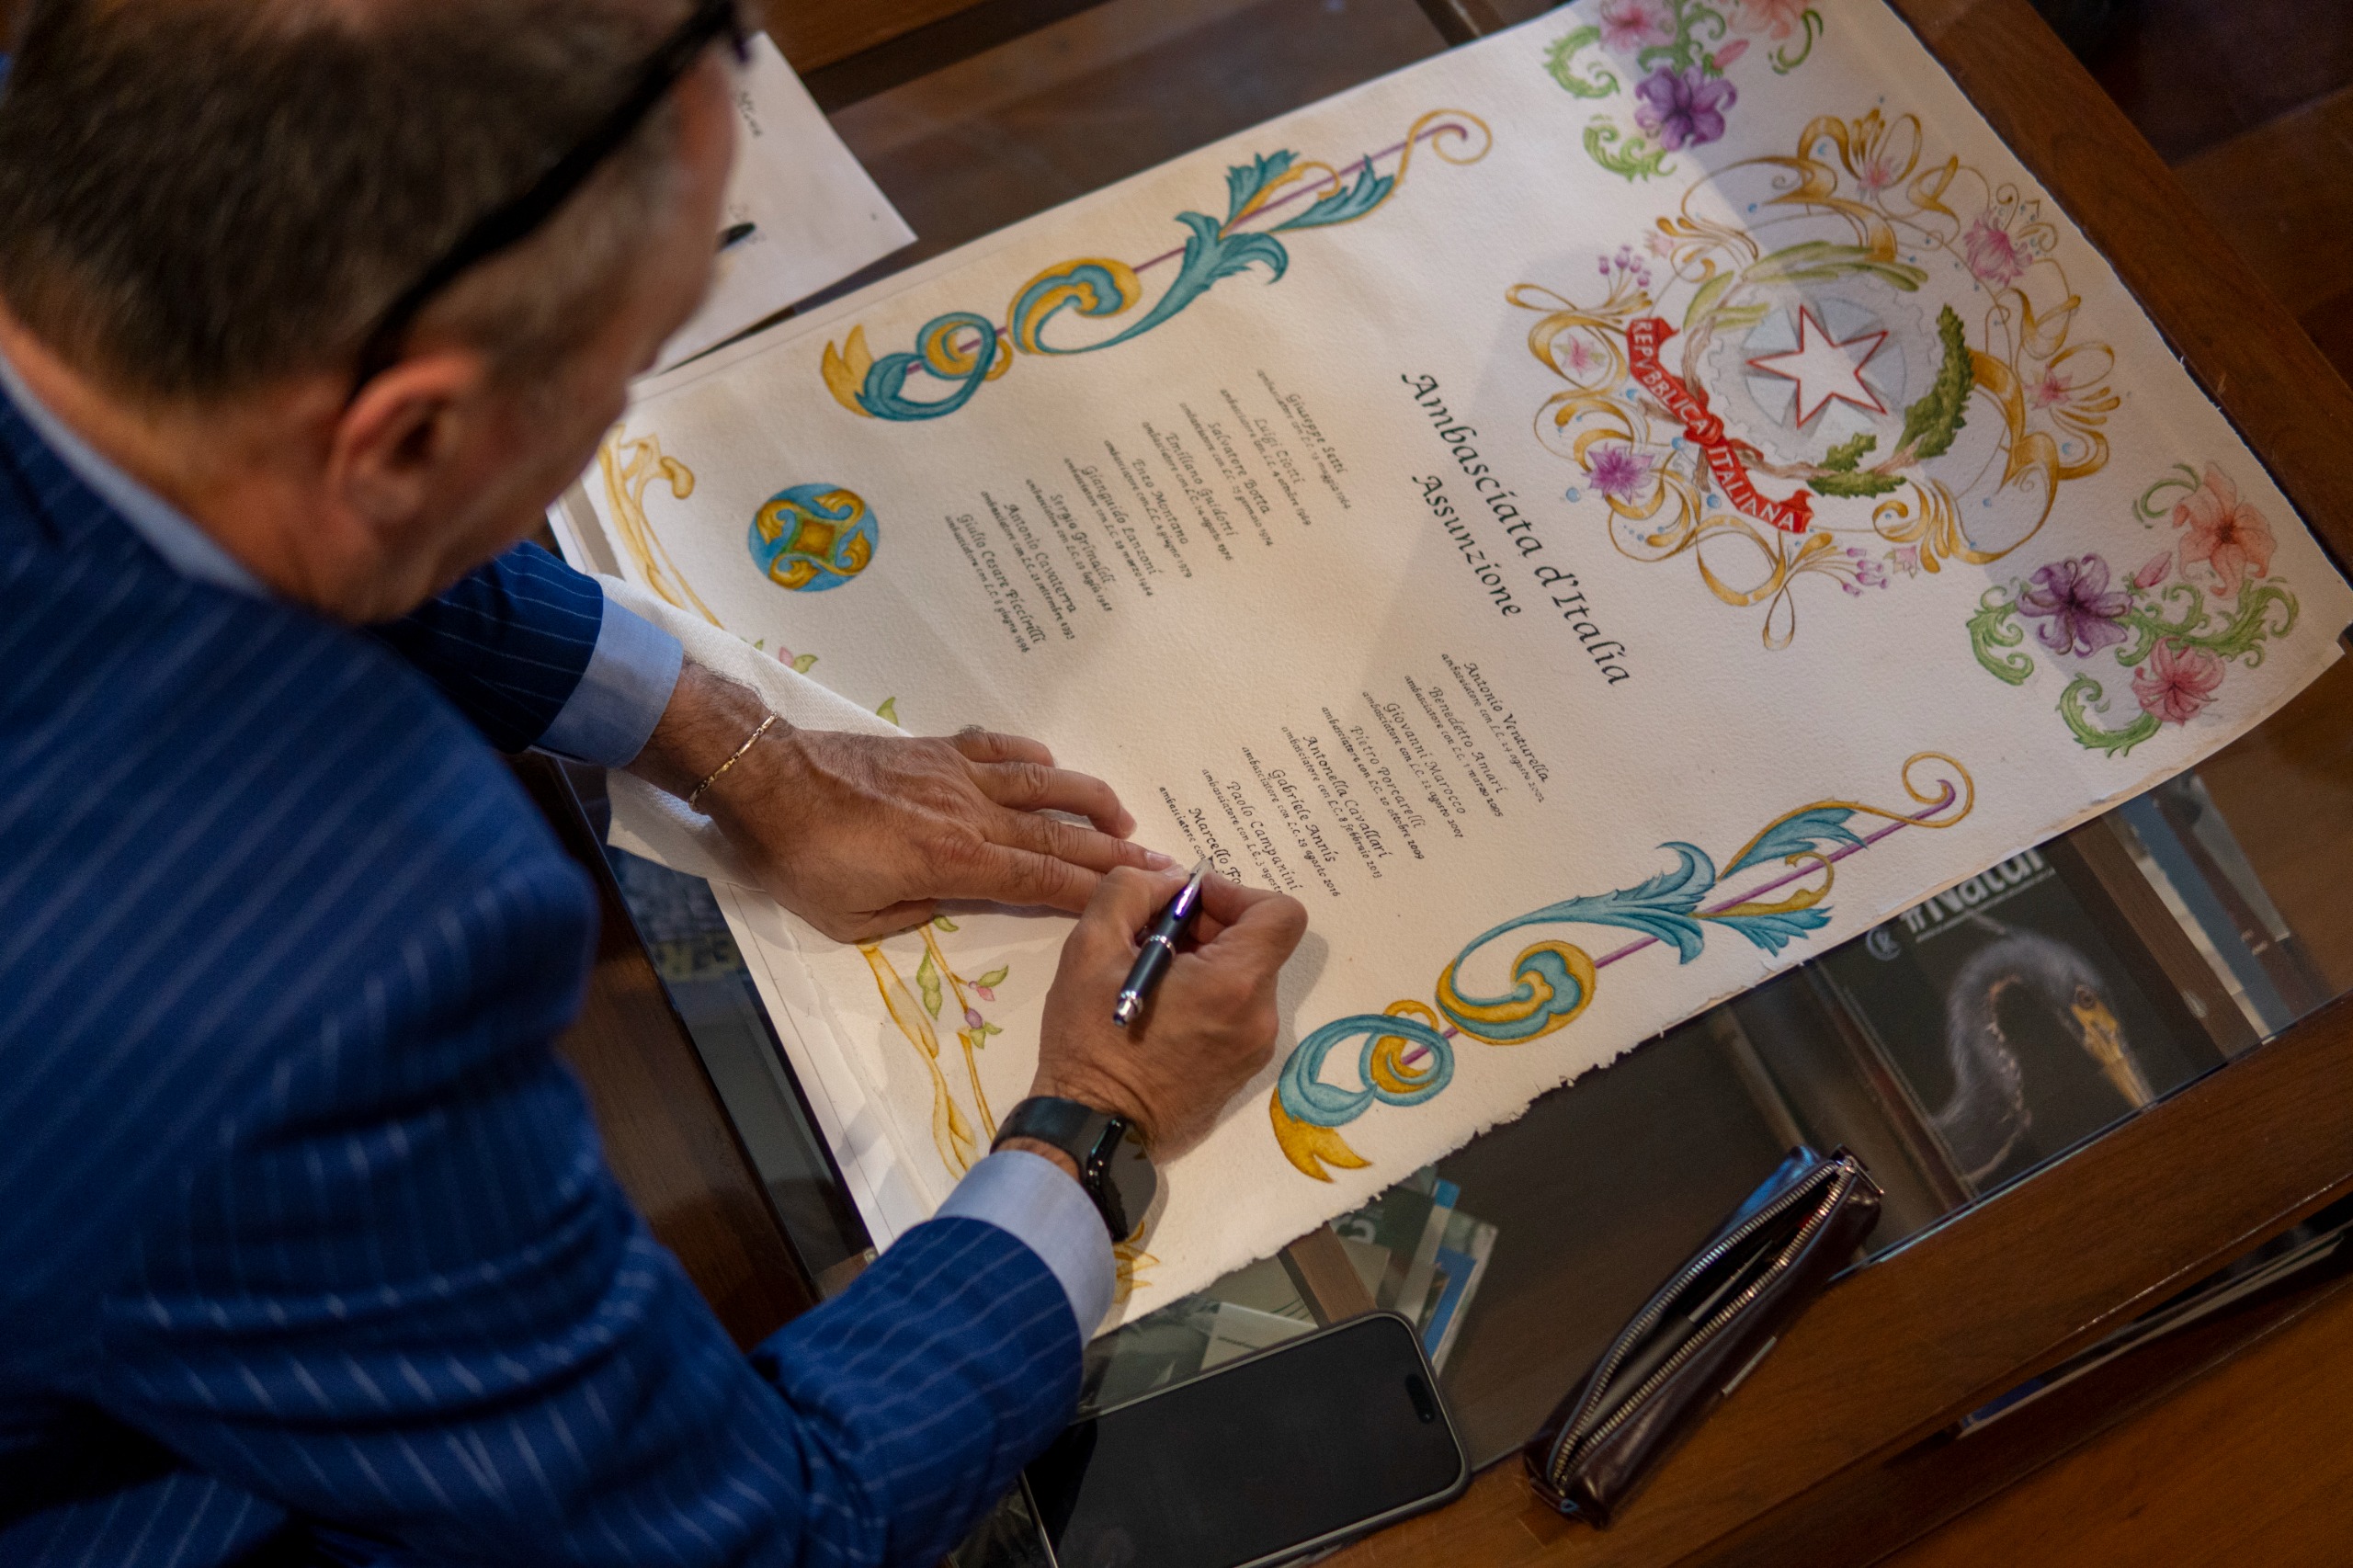 REPVBBLICA ITALIANA
Ambasciata d'Italia
Assunzione
Giuseppe Setti
ambasciatore con L.C. 19 maggio 1964
Luigi Ciotti
ambasciatore con L.C. 4 ottobre 1969
Salvatore Botta
ambasciatore con L.C. 15 gennaio 1974
Emiliano Guidotti
ambasciatore con L.C. 24 agosto 1976
Enzo Montano
ambasciatore con L.C. 8 giugno 1979
Gianguido Lanzoni
ambasciatore con L.C. 29 marzo 1984
Sergio Grimaldi
ambasciatore con L.C. 20 luglio 1988
Antonio Cavaterra
ambasciatore con L.C. 21 settembre 1993
Giulio Cesare Piccirilli
ambasciatore con L.C. 6 giugno 1996
Antonio Venturella
ambasciatore con L.C. 24 agosto 2002
Benedetto Amari
ambasciatore con L.C. 1 marzo 2005
Giovanni Marocco
ambasciatore con L.C. 22 agosto 2007
Pietro Porcarelli
ambasciatore con L.C. 20 ottobre 2009
Antonella Cavallari
ambasciatore con L.C. 8 febbraio 2013
Gabriele Annis
ambasciatore con L.C. 29 agosto 2016
Paolo Campanini
ambasciatore con L.C. 3 agosto
Marcello Fo
ambasciatore con
#Natur